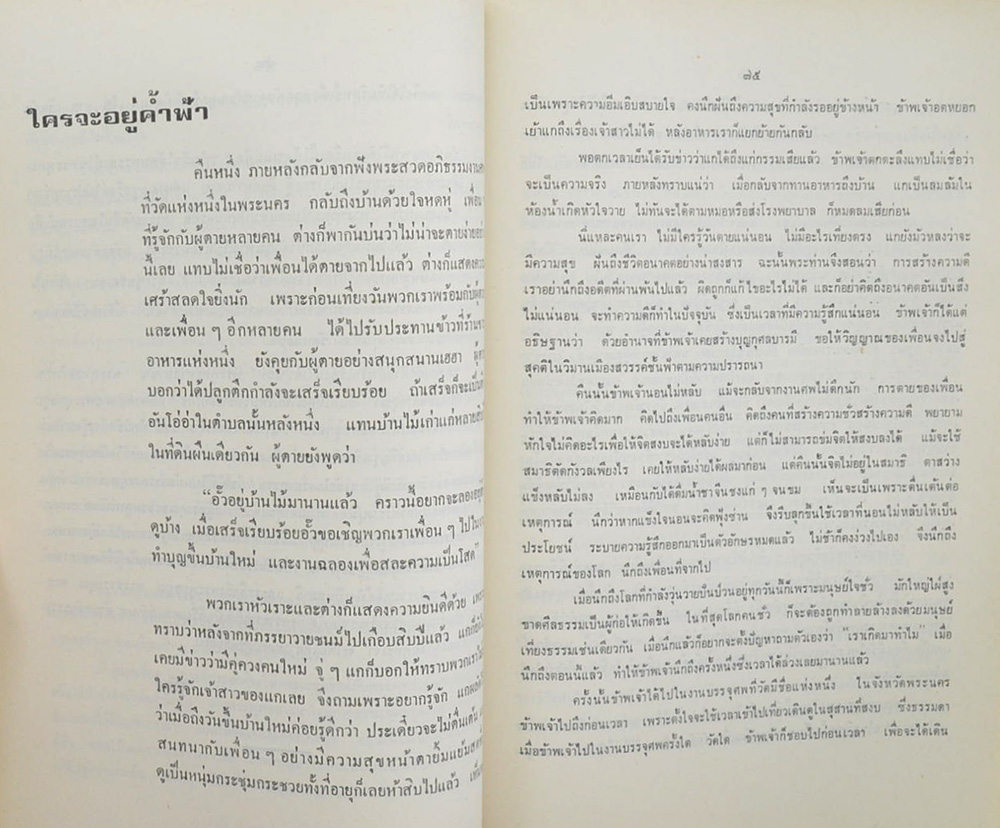 ใครจะอยู่ค้ำฟ้า
คืนหนึ่ง ภายหลังกลับจากฟังพระสวดอภิธรรมงาน
ที่วัดแห่งหนึ่งในพระนคร กลับถึงบ้านด้วยใจหดหู่ เพื่อน
ที่รู้จักกับผู้ตายหลายคน ต่างก็พากันบ่นว่าไม่น่าจะตายง่าย
นี้เลย แทบไม่เชื่อว่าเพื่อนได้ตายจากไปแล้ว ต่างก็แสดง
เศร้าสลดใจยิ่งนัก เพราะก่อนเที่ยงวันพวกเราพร้อมกับ
และเพื่อน ๆ อีกหลายคน ได้ไปรับประทานข้าวที่ร้าน
อาหารแห่งหนึ่ง ยังคุยกับผู้ตายอย่างสนุกสนานเฮฮา
บอกว่าได้ปลูกตึกกำลังจะเสร็จเรียบร้อย ถ้าเสร็จก็จะเป็น
อันโอ่อ่าในตำบลนั้นหลังหนึ่ง แทนบ้านไม้เก่าแก่หลาย
ในที่ดินผืนเดียวกัน ผู้ตายยังพูดว่า
“อั๊วอยู่บ้านไม้มานานแล้ว คราวนี้อยากจะลอง
ดูบ้าง เมื่อเสร็จเรียบร้อยอั๊วขอเชิญพวกเราเพื่อน ๆ ไป
ทำบุญขึ้นบ้านใหม่ และงานฉลองเพื่อสละความเป็นโสด”
พวกเราหัวเราะและต่างก็แสดงความยินดีด้วย
ทราบว่าหลังจากที่ภรรยาวายชนม์ไปเกือบสิบปีแล้ว
เคยมีข่าวว่ามีคู่ควงคนใหม่ จู่ ๆ แกก็บอกให้ทราบพวกเรา
ใครรู้จักเจ้าสาวของแกเลย จึงถามเพราะอยากรู้จัก
ว่าเมื่อถึงวันขึ้นบ้านใหม่ค่อยรู้ดีกว่า ประเดี๋ยวจะไม่ตื่นเต้น
สนทนากับเพื่อน ๆ อย่างมีความสุขหน้าตายิ้มแย้ม
ดูเป็นหนุ่มกระชุ่มกระชวยทั้งที่อายุก็เลยห้าสิบไปแล้ว
๗๕
เป็นเพราะความอิ่มเอิบสบายใจ คงนึกฝันถึงความสุขที่กำลังรออยู่ข้างหน้า ข้าพเจ้าอดหยอก
เย้าแกถึงเรื่องเจ้าสาวไม่ได้ หลังอาหารเราก็แยกย้ายกันกลับ
พอตกเวลาเย็นได้รับข่าวว่าแกได้ถึงแก่กรรมเสียแล้ว ข้าพเจ้าตกตะลึงแทบไม่เชื่อว่า
จะเป็นความจริง ภายหลังทราบแน่ว่า เมื่อกลับจากทานอาหารถึงบ้าน แกเป็นลมล้มใน
ห้องน้ำเกิดหัวใจวาย ไม่ทันจะได้ตามหมอหรือส่งโรงพยาบาล ก็หมดลมเสียก่อน
นี่แหละคนเรา ไม่มีใครรู้วันตายแน่นอน ไม่มีอะไรเที่ยงตรง แกยังมัวหลงว่าจะ
มีความสุข ฝันถึงชีวิตอนาคตอย่างน่าสงสาร ฉะนั้นพระท่านจึงสอนว่า การสร้างความดี
เราอย่านึกถึงอดีตที่ผ่านพ้นไปแล้ว ผิดถูกก็แก้ไขอะไรไม่ได้ และก็อย่าคิดถึงอนาคตอันเป็นสิ่ง
ไม่แน่นอน จะทำความดีก็ทำในปัจจุบัน ซึ่งเป็นเวลาที่มีความรู้สึกแน่นอน ข้าพเจ้าก็ได้แต่
อธิษฐานว่า ด้วยอำนาจที่ข้าพเจ้าเคยสร้างบุญกุศลบารมี ขอให้วิญญาณของเพื่อนจงไปสู่
สุคติในวิมานเมืองสวรรค์ชั้นฟ้าตามความปรารถนา
คืนนั้นข้าพเจ้านอนไม่หลับ แม้จะกลับจากงานศพไม่ดึกนัก การตายของเพื่อน
ทำให้ข้าพเจ้าคิดมาก คิดไปถึงเพื่อนคนอื่น คิดถึงคนที่สร้างความชั่วสร้างความดี พยายาม
หักใจไม่คิดอะไรเพื่อให้จิตสงบจะได้หลับง่าย แต่ก็ไม่สามารถข่มจิตให้สงบลงได้ แม้จะใช้
สมาธิตัดกังวลเพียงไร เคยให้หลับง่ายได้ผลมาก่อน แต่คืนนั้นจิตไม่อยู่ในสมาธิ ตาสว่าง
แข็งหลับไม่ลง เหมือนกับได้ดื่มน้ำชาจีนชงแก่ ๆ จนขม เห็นจะเป็นเพราะตื่นเต้นต่อ
เหตุการณ์ นึกว่าหากแข็งใจนอนจะคิดฟุ้งซ่าน จึงรีบลุกขึ้นใช้เวลาที่นอนไม่หลับให้เป็น
ประโยชน์ ระบายความรู้สึกออกมาเป็นตัวอักษรหมดแล้ว ไม่ช้าก็คงง่วงไปเอง จึงนึกถึง
เหตุการณ์ของโลก นึกถึงเพื่อนที่จากไป
เมื่อนึกถึงโลกที่กำลังวุ่นวายปั่นป่วนอยู่ทุกวันนี้ก็เพราะมนุษย์ใจชั่ว มักใหญ่ใฝ่สูง
ขาดศีลธรรมเป็นผู้ก่อให้เกิดขึ้น ในที่สุดโลกคนชั่ว ก็จะต้องถูกทำลายล้างลงด้วยมนุษย์
เที่ยงธรรมเช่นเดียวกัน เมื่อนึกแล้วก็อยากจะตั้งปัญหาถามตัวเองว่า “เราเกิดมาทำไม” เมื่อ
นึกถึงตอนนี้แล้ว ทำให้ข้าพเจ้านึกถึงครั้งหนึ่งซึ่งเวลาได้ล่วงเลยมานานแล้ว
ครั้งนั้นข้าพเจ้าได้ไปในงานบรรจุศพที่วัดมีชื่อแห่งหนึ่ง ในจังหวัดพระนคร
ข้าพเจ้าไปถึงก่อนเวลา เพราะตั้งใจจะใช้เวลาเข้าไปเที่ยวเดินดูในสุสานที่สงบ ซึ่งธรรมดา
เมื่อข้าพเจ้าไปในงานบรรจุศพครั้งใด วัดใด ข้าพเจ้าก็ชอบไปก่อนเวลา เพื่อจะได้เดิน